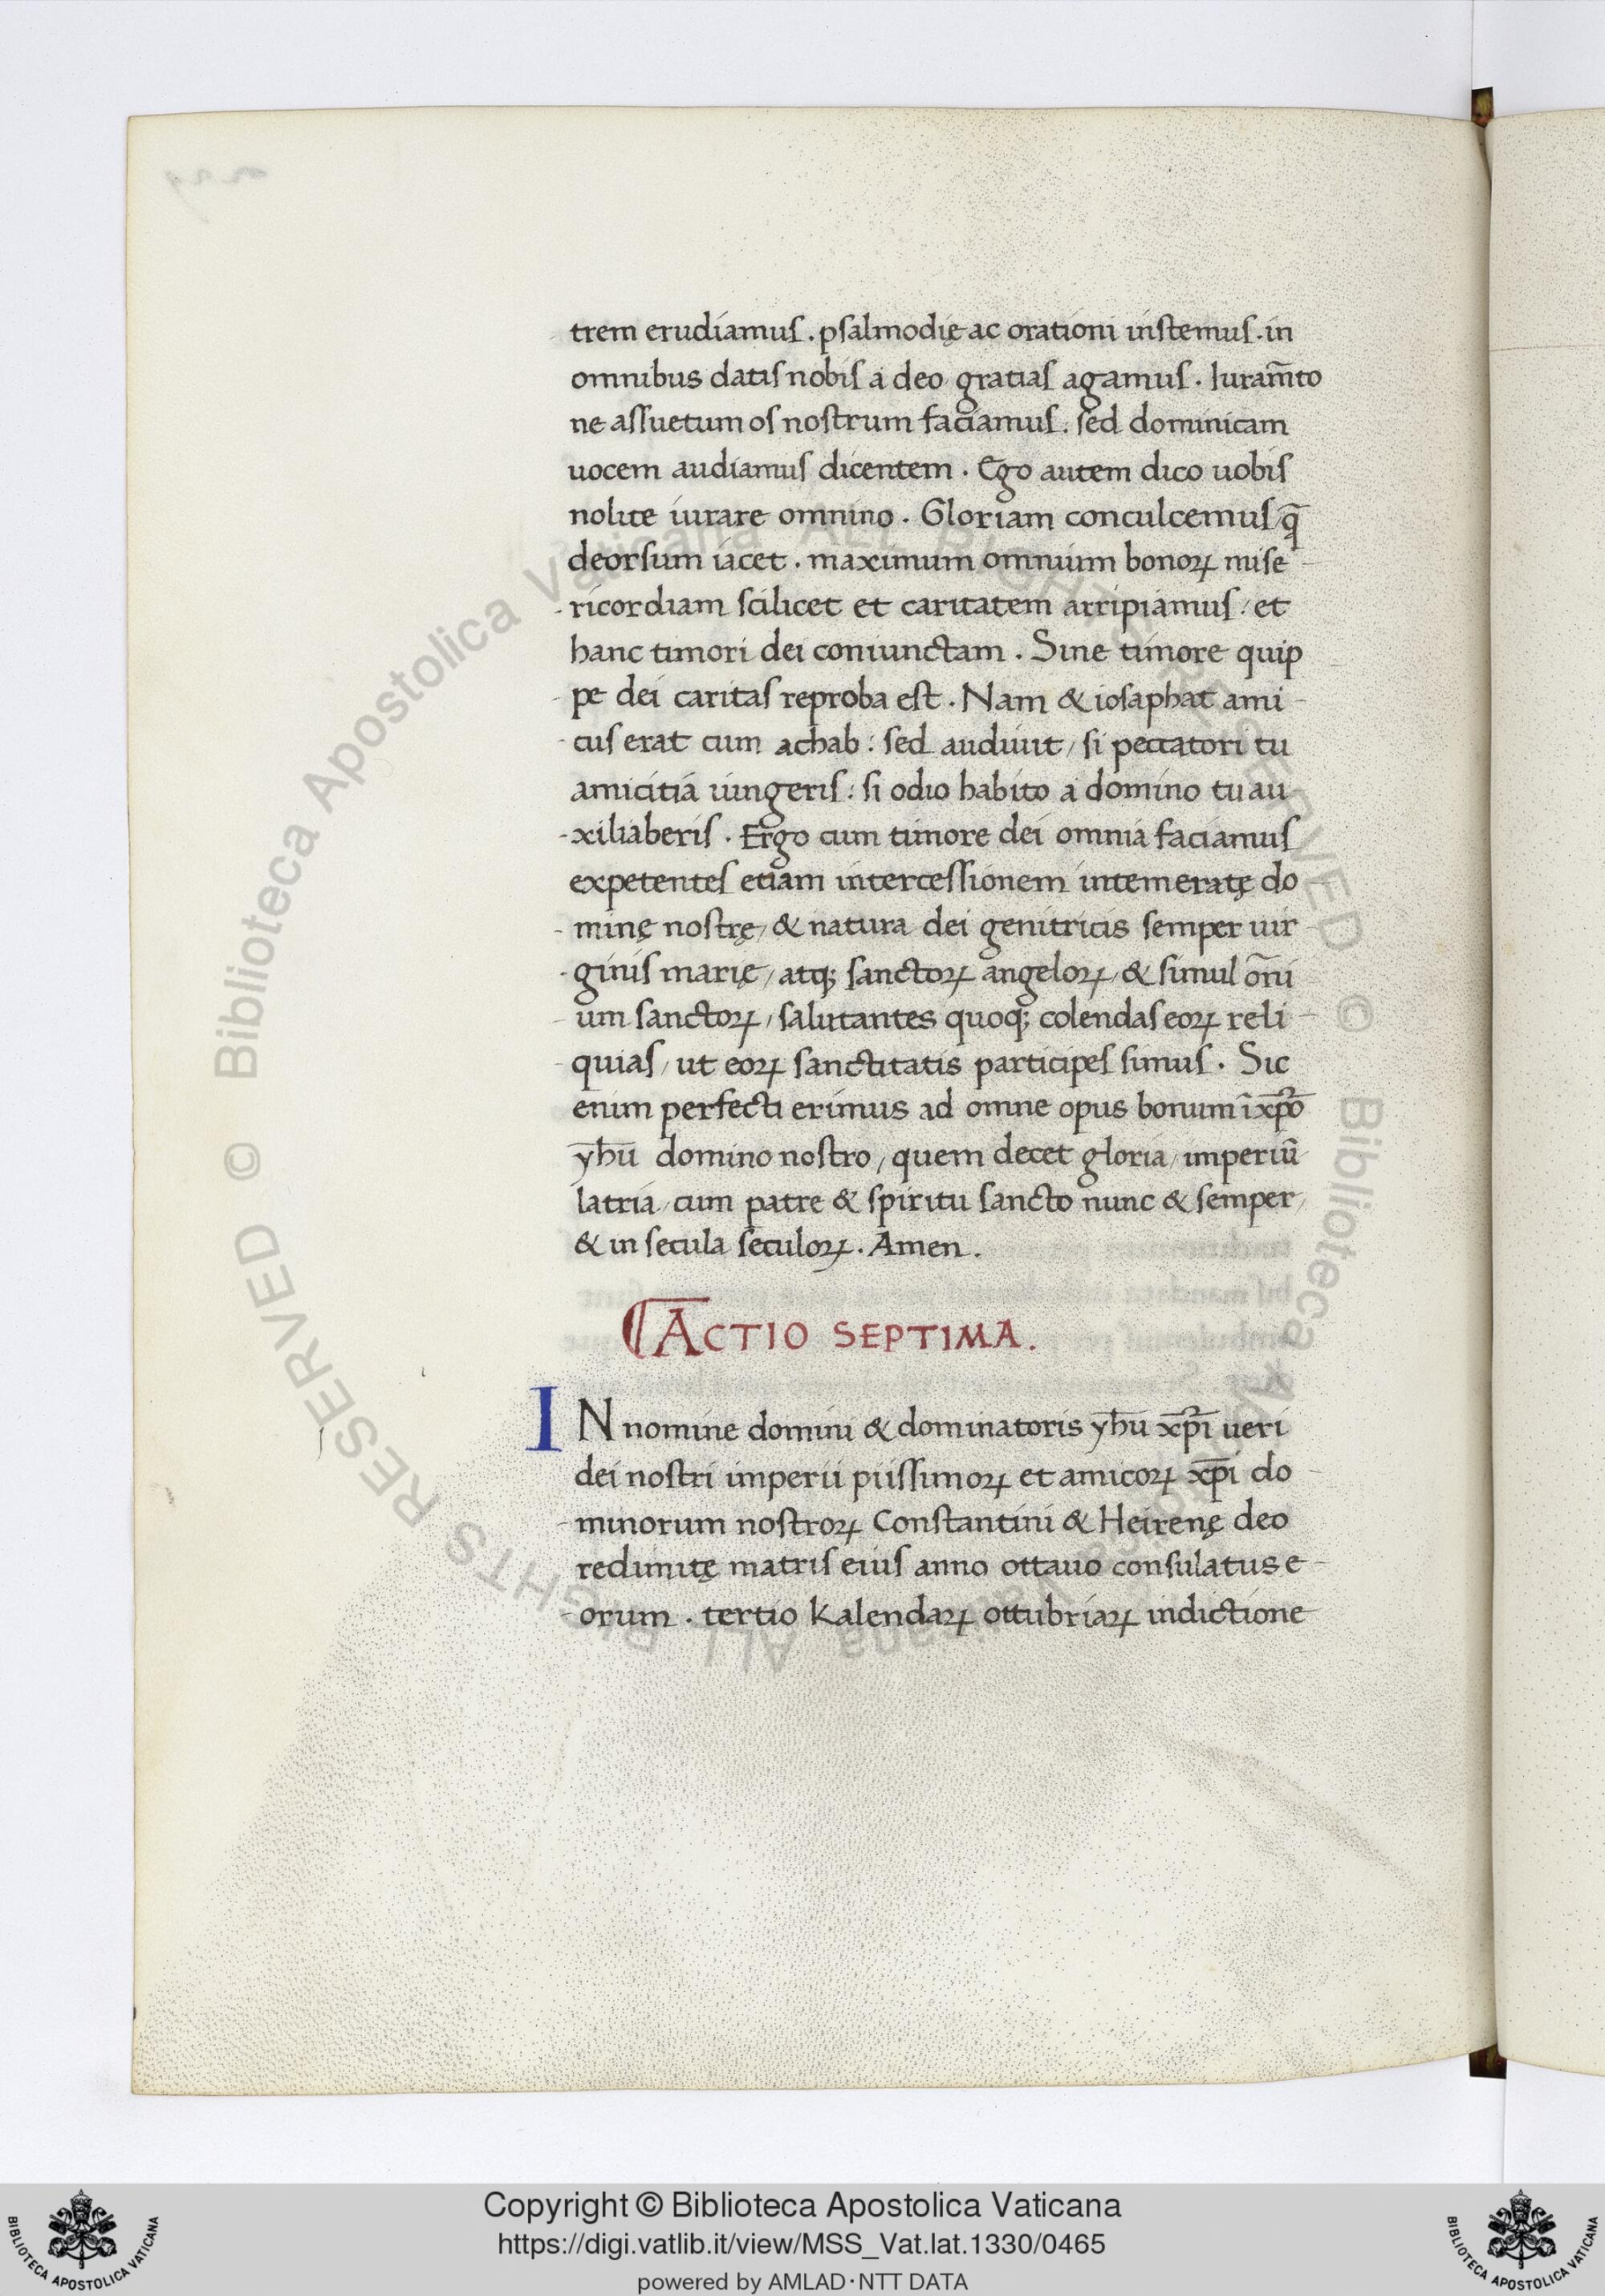 trem erudiamus. psalmodię ac orationi instemus. in
omnibus datis nobis a deo gratias agamus. Iuram̄to
ne assuetum os nostrum faciamus. sed dominicam
uocem audiamus dicentem. Ego autem dico uobis
nolite iurare omnino. Gloriam conculcemus/ q̄
deorsum iacet. maximum omnium bonoꝝ mise-
ricordiam scilicet et caritatem arripiamus/ et
hanc timori dei coniunctam. Sine timore quip
pe dei caritas reproba est. Nam & iosaphat ami-
cus erat cum achab: sed audiuit/ si peccatori tu
amicitia iungeris: si odio habito a domino tu au
xiliaberis. Ergo cum timore dei omnia faciamus
expetentes etiam intercessionem intemeratę do
minę nostrę/ & natura dei genitricis semper uir-
ginis marię/ atq; sanctoꝝ angeloꝝ/ & simul om̄i
um sanctoꝝ/ salutantes quoq; colendas eoꝝ reli-
quias/ ut eoꝝ sanctitatis participes simus. Sic
enim perfecti erimus ad omne opus bonum ī xp̄o
yhū domino nostro/ quem decet gloria/ imperiū
latria/ cum patre & spiritu sancto nunc & semper/
& in secula seculoꝝ. Amen.
ACTIO SEPTIMA.
IN nomine domini & dominatoris yhū xp̄i ueri
dei nostri imperii piissimoꝝ et amicoꝝ xp̄i do-
minorum nostroꝝ Constantini & Heirenę deo
redimitę matris eius anno ottauo consulatus e-
orum. tertio Kalendaꝝ ottubriaꝝ indictione
© Biblioteca Apostolica Vaticana ALL RIGHTS RESERVED © Biblioteca Apostolica Vaticana ALL RIGHTS RESERVED
Copyright © Biblioteca Apostolica Vaticana
https://digi.vatlib.it/view/MSS_Vat.lat.1330/0465
powered by AMLAD·NTT DATA
BIBLIOTECA APOSTOLICA VATICANA
BIBLIOTECA APOSTOLICA VATICANA